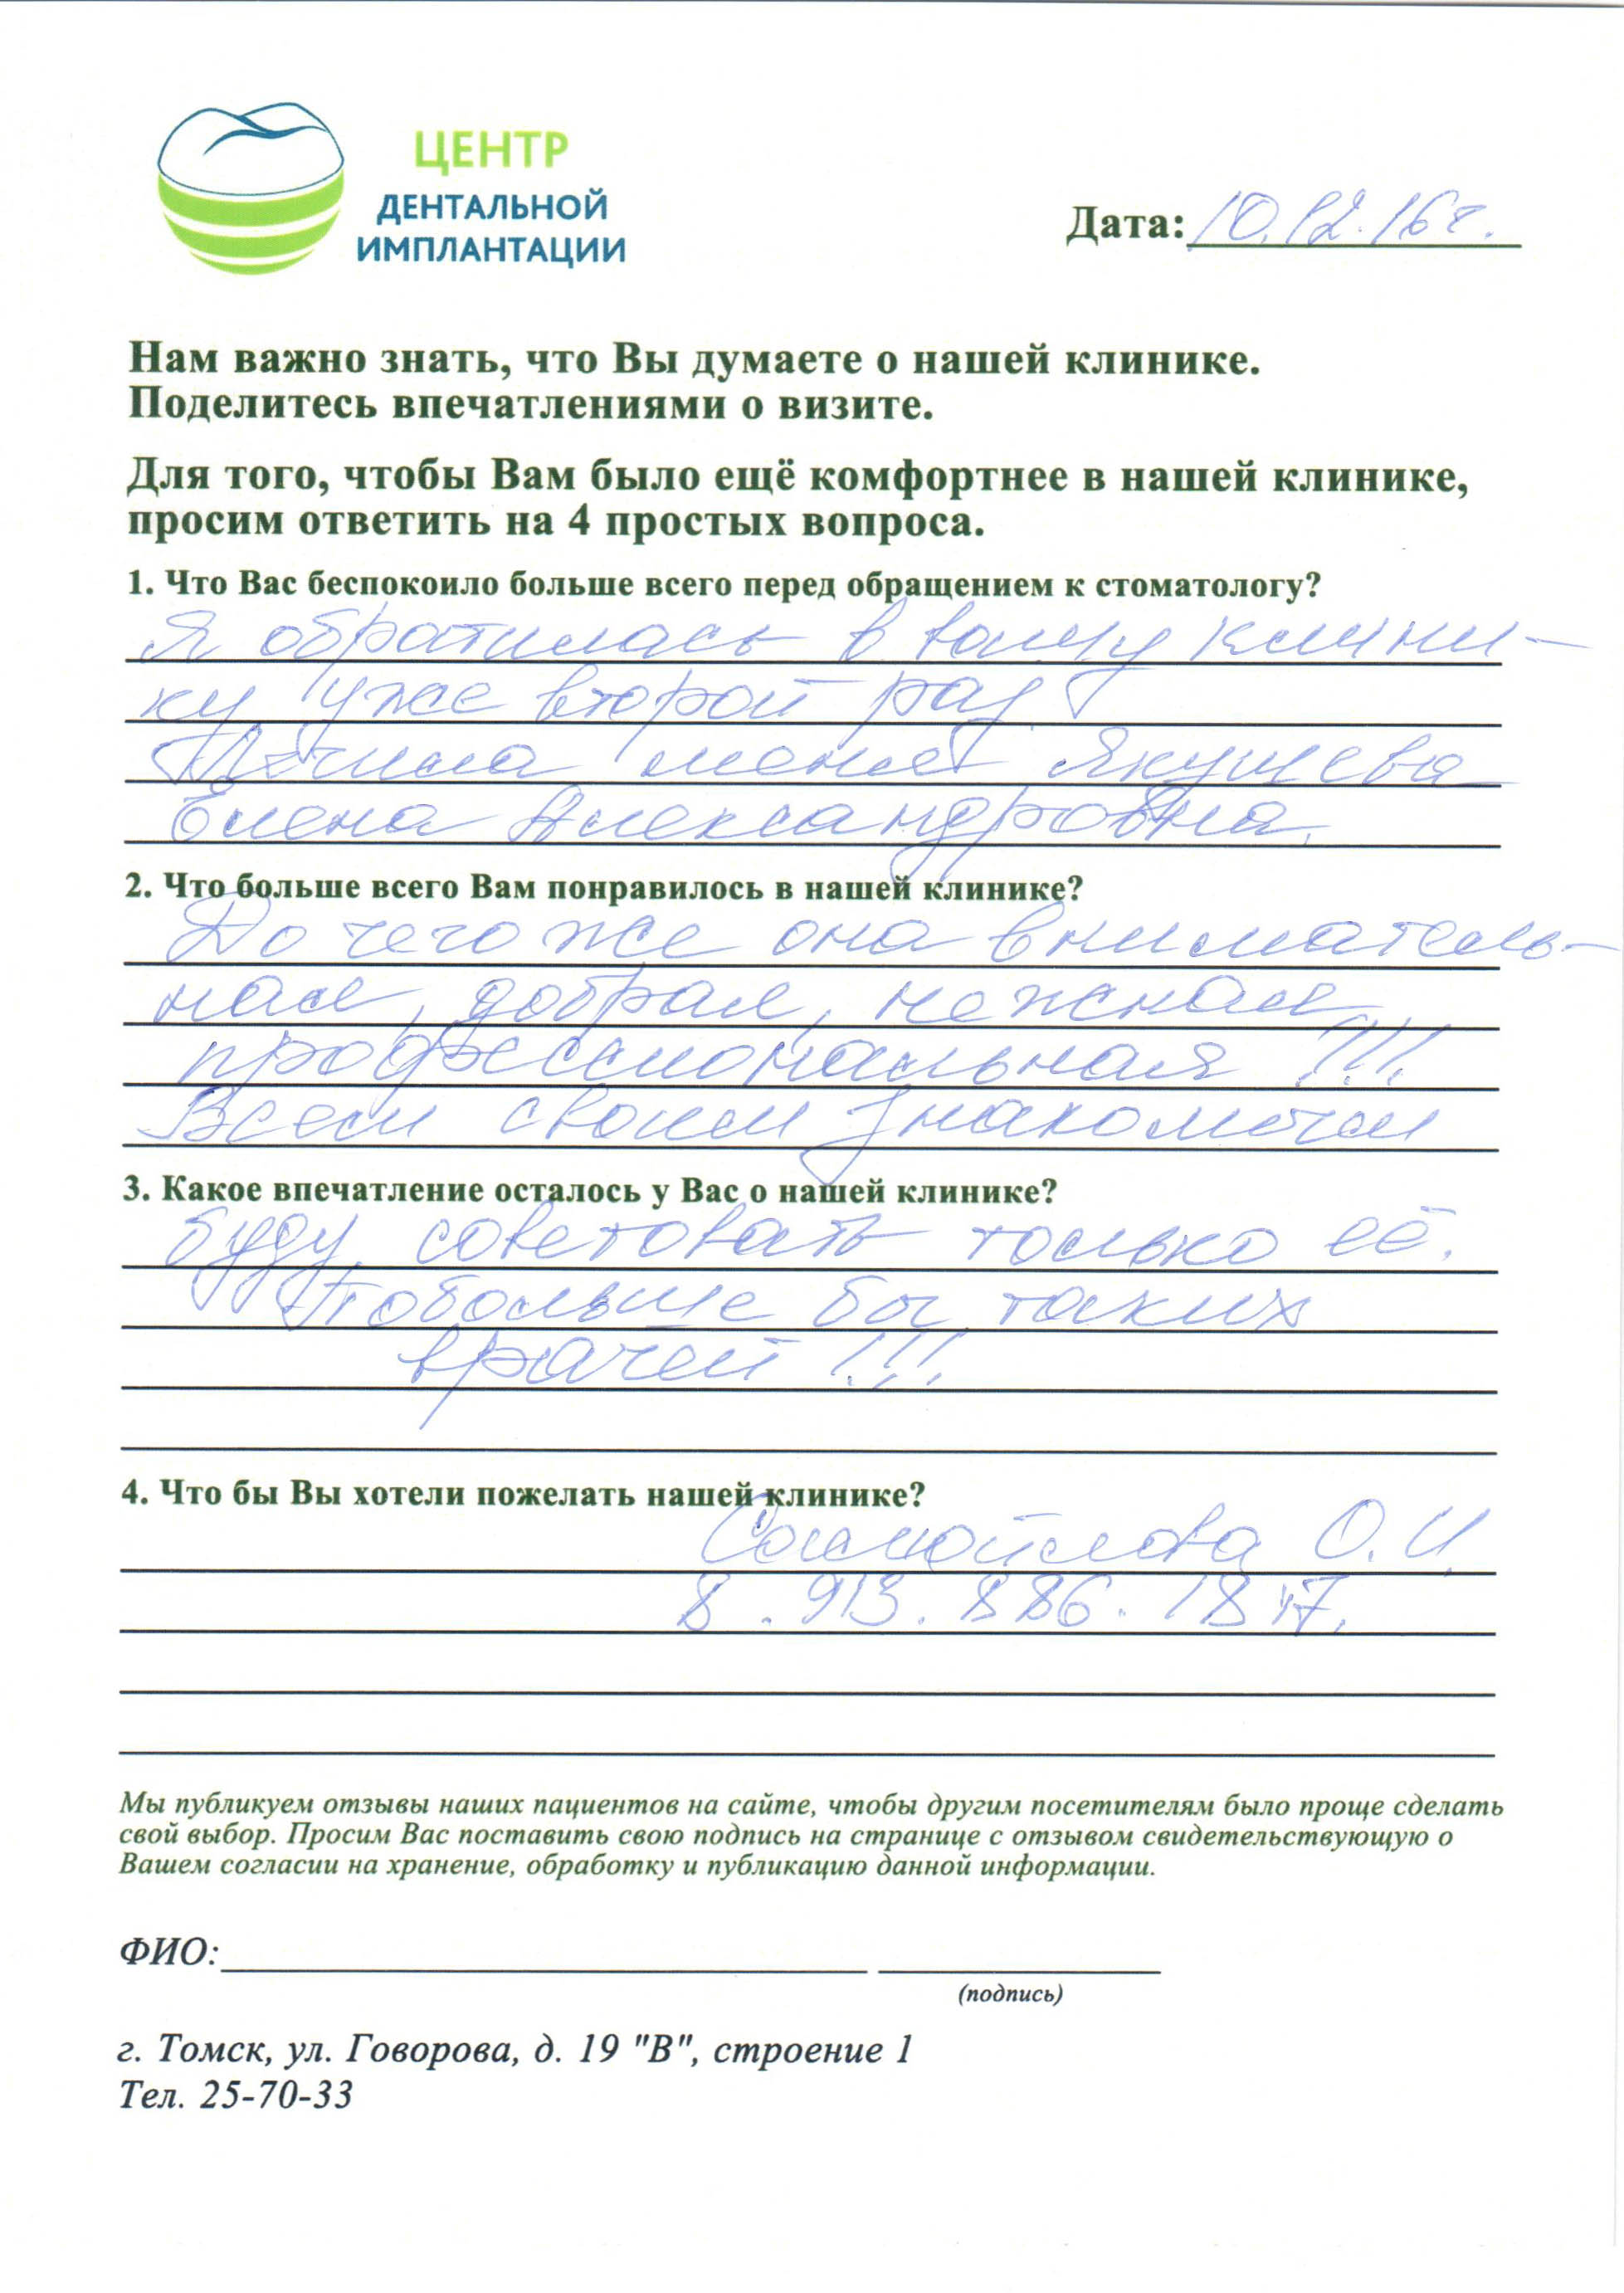 ЦЕНТР
ДЕНТАЛЬНОЙ
ИМПЛАНТАЦИИ
Дата: 10.12.16г.
Нам важно знать, что Вы думаете о нашей клинике.
Поделитесь впечатлениями о визите.
Для того, чтобы Вам было ещё комфортнее в нашей клинике,
просим ответить на 4 простых вопроса.
1. Что Вас беспокоило больше всего перед обращением к стоматологу?
Я обратилась в вашу клини-
ку уже второй раз
Лечила меня Якушева
Елена Александровна.
2. Что больше всего Вам понравилось в нашей клинике?
До чего же она вниматель-
ная, добрая, нежная
профессиональная !!!
Всем своим знакомым
3. Какое впечатление осталось у Вас о нашей клинике?
буду советовать только её.
Побольше бы таких
врачей !!!
4. Что бы Вы хотели пожелать нашей клинике?
Самойлова О.И.
8.913.886.1847.
Мы публикуем отзывы наших пациентов на сайте, чтобы другим посетителям было проще сделать
свой выбор. Просим Вас поставить свою подпись на странице с отзывом свидетельствующую о
Вашем согласии на хранение, обработку и публикацию данной информации.
ФИО:
(подпись)
г. Томск, ул. Говорова, д. 19 "В", строение 1
Тел. 25-70-33